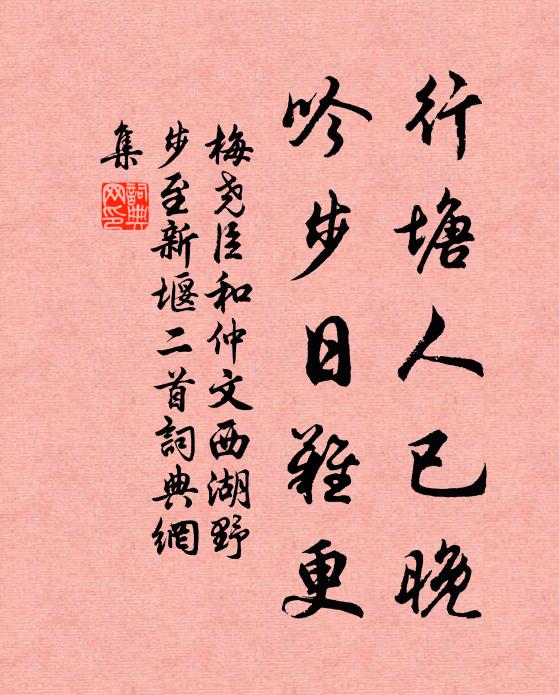 行塘人已晚
吟步日難更
梅堯臣和仲文西湖野
步至新堰二首詞典網
集
詞典
网印